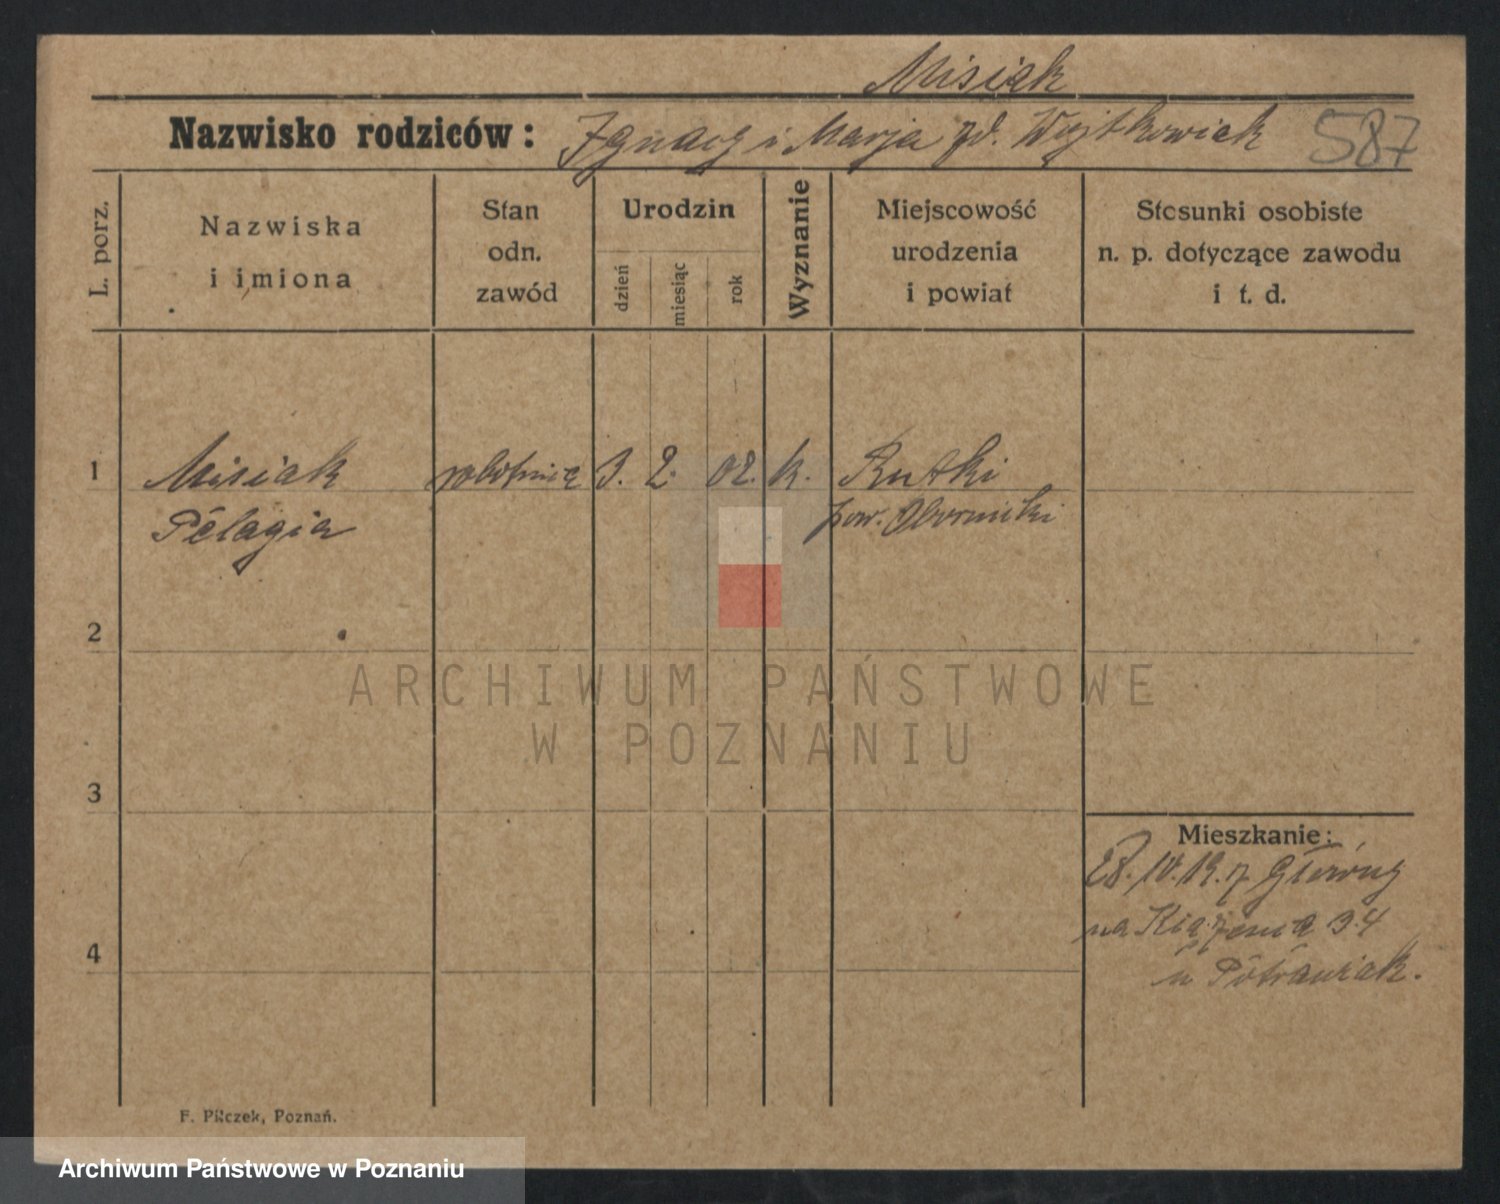 Misiak
Nazwisko rodziców: Ignacy i Marja zd. Wojtkowiak 587
L. porz.
Nazwiska
i imiona
Stan
odn.
zawód
Urodzin
dzień
miesiąc
rok
Wyznanie
Miejscowość
urodzenia
i powiat
Stosunki osobiste
n. p. dotyczące zawodu
i t. d.
1 Misiak robotnica 3. 2. 02. k. Rutki
Pelagia pow. Oborniki
2
ARCHIWUM PAŃSTWOWE
W POZNANIU
3
Mieszkanie:
28. IV. 19. z Główny
na 34
4
u
F. Pilczek, Poznań.
Archiwum Państwowe w Poznaniu